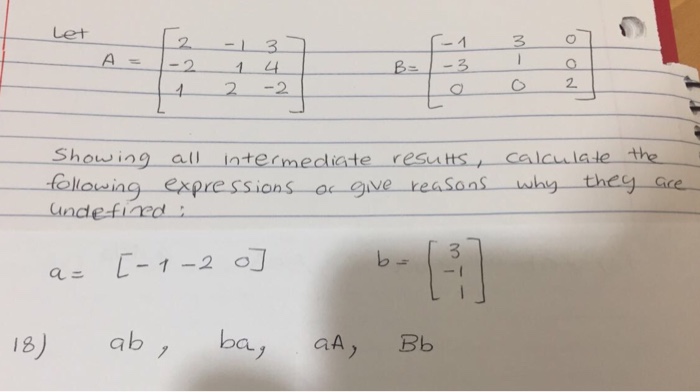 Let
A = [ 2 -1 3 B= [ -1 3 0
-2 1 4 -3 1 0
1 2 -2 ] 0 0 2 ]
Showing all intermediate results, calculate the
following expressions or give reasons why they are
undefined :
a = [-1 -2 0] b = [ 3
-1
1 ]
18) ab, ba, aA, Bb